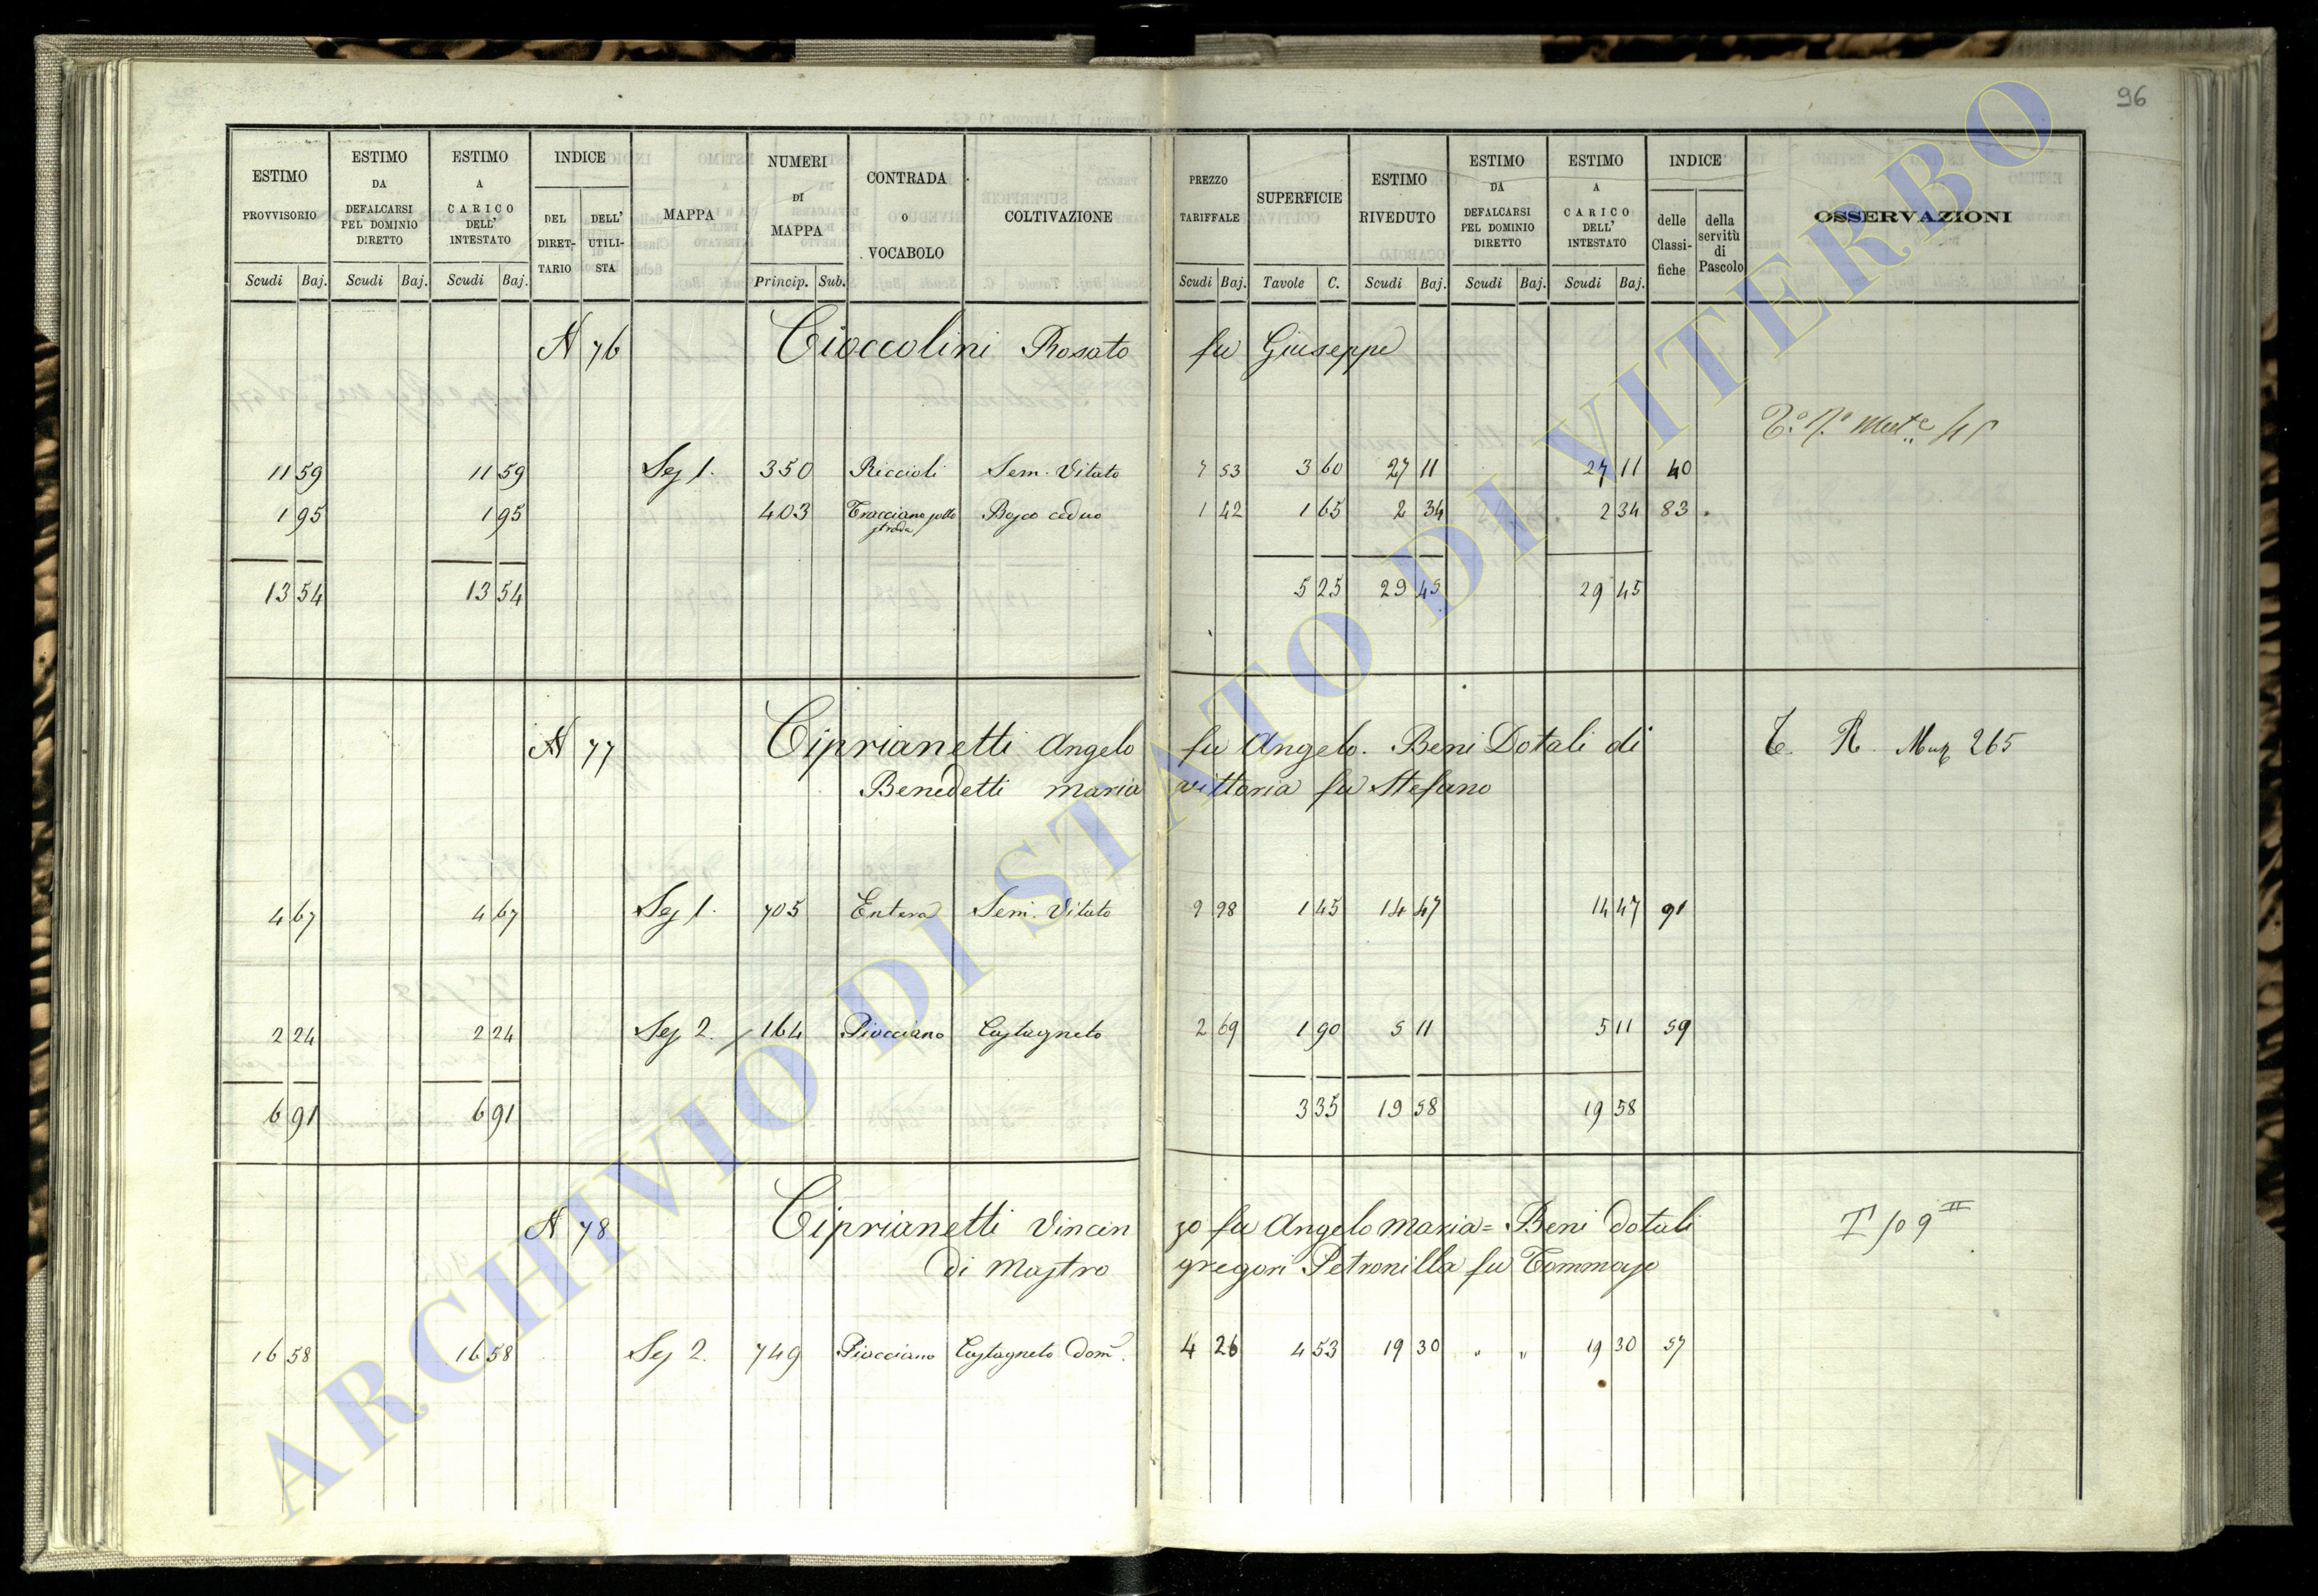 96
ESTIMO PROVVISORIO
ESTIMO DA DEFALCARSI PEL DOMINIO DIRETTO
ESTIMO A CARICO DELL' INTESTATO
INDICE
DEL DIRET-TARIO
DELL' UTILI-STA
MAPPA
NUMERI DI MAPPA
CONTRADA O VOCABOLO
COLTIVAZIONE
PREZZO TARIFFALE
SUPERFICIE
ESTIMO RIVEDUTO
ESTIMO DA DEFALCARSI PEL DOMINIO DIRETTO
ESTIMO A CARICO DELL' INTESTATO
INDICE
delle Classi-fiche
della servitù di Pascolo
OSSERVAZIONI
Scudi Baj. Scudi Baj. Scudi Baj. Princip. Sub. Scudi Baj. Tavole C. Scudi Baj. Scudi Baj. Scudi Baj.
N 76 Cioccolini Rosato fu Giuseppe
11 59 11 59 Sez 1. 350 Riccioli Sem. Vitato 7 53 3 60 27 11 27 11 40
1 95 1 95 403 Tracciano sotto strada Bosco ceduo 1 42 1 65 2 34 2 34 83
13 54 13 54 5 25 29 45 29 45
N 77 Ciprianetti Angelo fu Angelo. Beni Dotali di T. R. 265
Benedetti Maria vittoria fu Stefano
4 67 4 67 Sez 1. 705 Entera Sem. Vitato 9 98 1 45 14 47 14 47 91
2 24 2 24 Sez 2. 164 Piacciano Castagneto 2 69 1 90 5 11 5 11 59
6 91 6 91 3 35 19 58 19 58
N 78 Ciprianetti Vincen zo fu Angelo Maria = Beni dotali T 109 II
di Mastro gregori Petronilla fu Tommaso
16 58 16 58 Sez 2. 749 Piacciano Castagneto Dom. 4 26 4 53 19 30 " " 19 30 57
ARCHIVIO DI STATO DI VITERBO